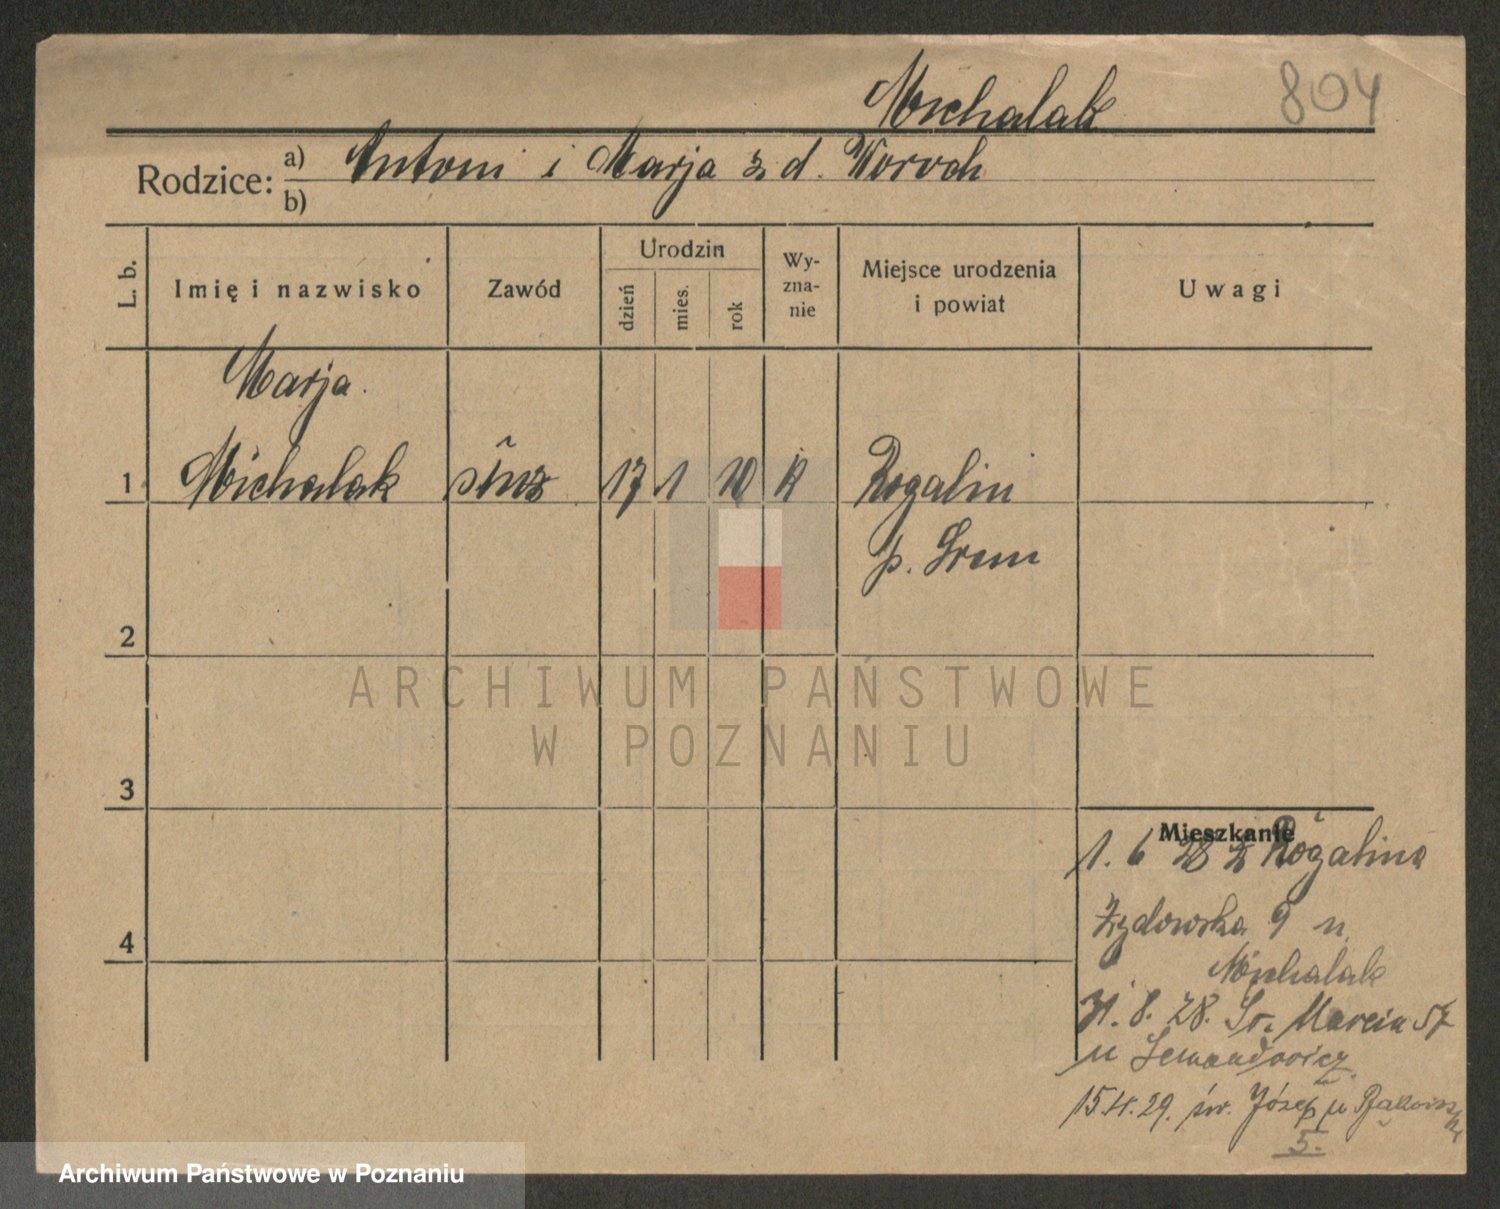 Michalak 804
Rodzice: a) Antoni i Marja z d. Woroch
b)
L. b. Imię i nazwisko Zawód Urodzin dzień mies. rok Wy-zna-nie Miejsce urodzenia i powiat Uwagi
Marja
1 Michalak służ 17 1 10 k Rogalin
p. Śrem
2
ARCHIWUM PAŃSTWOWE
W POZNANIU
3
Mieszkanie
1. 6 28 z Rogalina
4 Żydowska 9 u
Michalak
31. 8. 28. Św. Marcin 57
u
15. 29. św. Józef u
5.
Archiwum Państwowe w Poznaniu